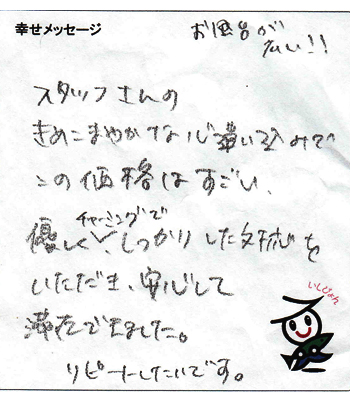 幸せメッセージ
お風呂が
広い!!
スタッフさんの
きめこまやかな心遣い込みで
この価格はすごい、
チャーミングで
優しく、しっかりした対応を
いただき、安心して
滞在できました。
リピートしたいです。